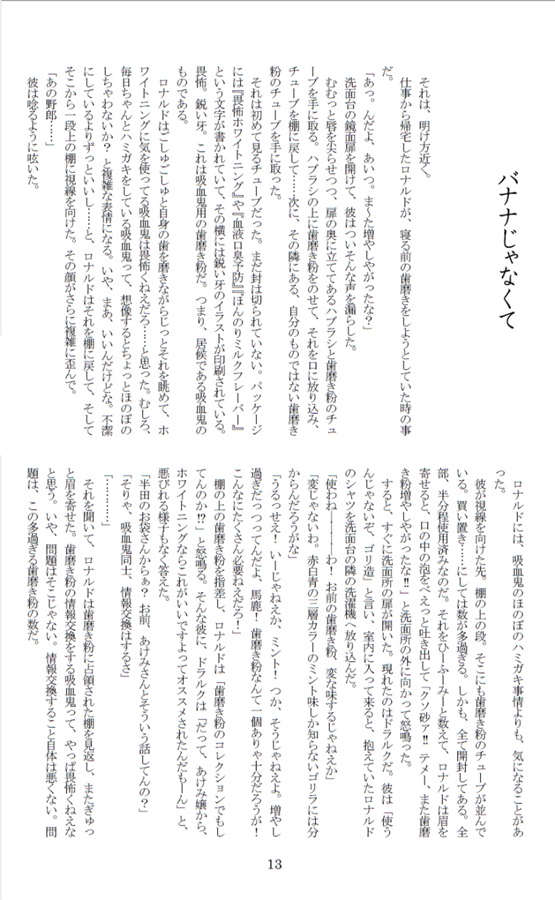 バナナじゃなくて
それは、明け方近く。
仕事から帰宅したロナルドが、寝る前の歯磨きをしようとしていた時の事
だ。
「あっ。んだよ、あいつ。ま〜た増やしやがったな?」
洗面台の鏡面扉を開けて、彼はついそんな声を漏らした。
むむっと唇を尖らせつつ、扉の奥に立ててあるハブラシと歯磨き粉のチュ
ーブを手に取る。ハブラシの上に歯磨き粉をのせて、それを口に放り込み、
チューブを棚に戻して……次に、その隣にある、自分のものではない歯磨き
粉のチューブを手に取った。
それは初めて見るチューブだった。まだ封は切られていない。パッケージ
には『畏怖ホワイトニング』や『血液口臭予防』『ほんのりミルクフレーバー』
という文字が書かれていて、その横には鋭い牙のイラストが印刷されている。
畏怖。鋭い牙。これは吸血鬼用の歯磨き粉だ。つまり、居候である吸血鬼の
ものである。
ロナルドはごしゅごしゅと自身の歯を磨きながらじっとそれを眺めて、ホ
ワイトニングに気を使ってる吸血鬼は畏怖くねえだろ……と思った。むしろ、
毎日ちゃんとハミガキをしている吸血鬼って、想像するとちょっとほのぼの
しちゃわないか? と複雑な表情になる。いや、まあ、いいんだけどな。不潔
にしているよりずっといいし……と、ロナルドはそれを棚に戻して、そして
そこから一段上の棚に視線を向けた。その顔がさらに複雑に歪んで。
「あの野郎……」
彼は唸るように呟いた。
ロナルドには、吸血鬼のほのぼのハミガキ事情よりも、気になることがあ
った。
彼が視線を向けた先。棚の上の段。そこにも歯磨き粉のチューブが並んで
いる。買い置き……にしては数が多過ぎる。しかも、全て開封してある。全
部、半分程使用済みなのだ。それをひーふーみーと数えて、ロナルドは眉を
寄せると、口の中の泡をべえっと吐き出して「クソ砂ァ‼ テメー、また歯磨
き粉増やしやがったな‼」と洗面所の外に向かって怒鳴った。
すると、すぐに洗面所の扉が開いた。現れたのはドラルクだ。彼は「使う
んじゃないぞ、ゴリ造」と言い、室内に入って来ると、抱えていたロナルド
のシャツを洗面台の隣の洗濯機へ放り込んだ。
「使わね————わ! お前の歯磨き粉、変な味するじゃねえか」
「変じゃないわ。赤白青の三層カラーのミント味しか知らないゴリラには分
からんだろうがな」
「うるっせえ! いーじゃねえか、ミント! つか、そうじゃねえよ。増やし
過ぎだっつってんだよ、馬鹿! 歯磨き粉なんて一個ありゃ十分だろうが!
こんなにたくさん必要ねえだろ?」
棚の上の歯磨き粉を指差し、ロナルドは「歯磨き粉のコレクションでもし
てんのか⁉」と怒鳴る。そんな彼に、ドラルクは「だって、あけみ嬢から、
ホワイトニングならこれがいいですよってオススメされたんだもーん」と、
悪びれる様子もなく答えた。
「半田のお袋さんからぁ? お前、あけみさんとそういう話してんの?」
「そりゃ、吸血鬼同士、情報交換はするさ」
「…………」
それを聞いて、ロナルドは歯磨き粉に占領された棚を見返し、またぎゅっ
と眉を寄せた。歯磨き粉の情報交換をする吸血鬼って、やっぱ畏怖くねえな
と思う。いや、問題はそこじゃない。情報交換すること自体は悪くない。問
題は、この多過ぎる歯磨き粉の数だ。
13